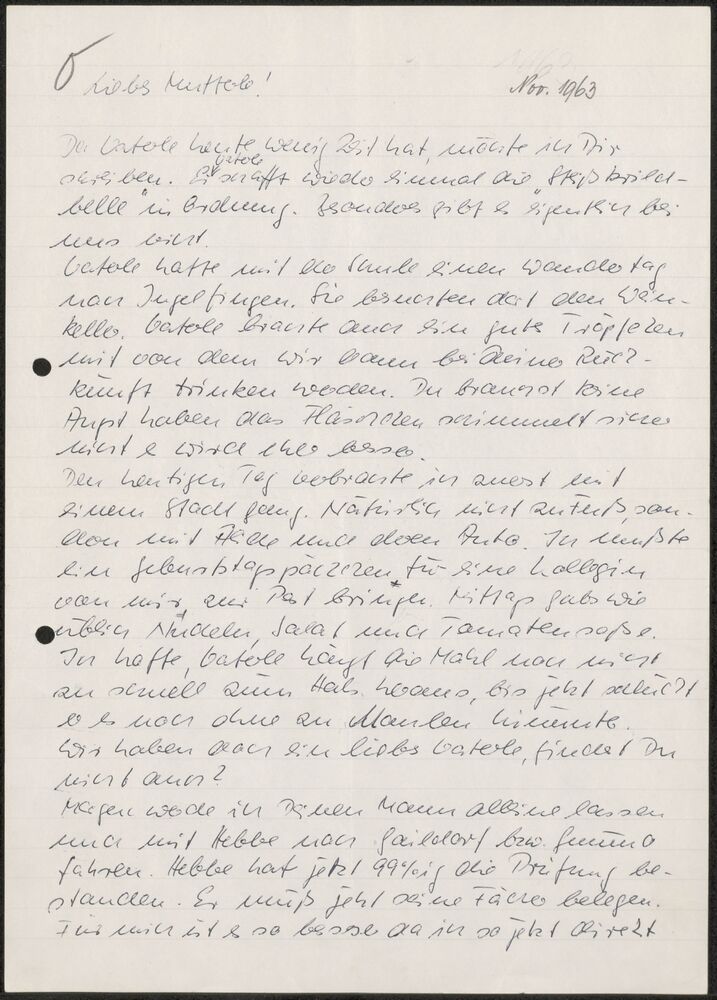 Liebes Mutterle!
Nov. 1963
Da Vaterle heute wenig Zeit hat, möchte ich Dir
schreiben. Vaterle schafft wieder einmal die "
belle" in Ordnung. Besonderes gibt es eigentlich bei
uns nicht.
Vaterle hatte mit der Schule einen Wandertag
nach Ingelfingen. Sie besuchten dort den Wein-
keller. Vaterle brachte auch ein gutes Tröpfchen
mit von dem wir dann bei Deiner Rück-
kunft trinken werden. Du brauchst keine
Angst haben das Fläschchen schimmelt sicher
nicht es wird eher besser.
Den heutigen Tag verbrachte ich zuerst mit
einem Stadtgang. Natürlich nicht zu Fuß, son-
dern mit und dem Auto. Ich mußte
ein Geburtstagspäckchen für eine Kollegin
von mir, zur Post bringen. Mittags gabs wie
üblich Nudeln, Salat und Tomatensoße.
Ich hoffe, Vaterle hängt die Mahl noch nicht
zu schnell zum Hals heraus, bis jetzt schluckt
er es noch ohne zu Maulen hinunter.
Wir haben doch ein liebes Vaterle, findest Du
nicht auch?
Morgen werde ich Deinen Mann alleine lassen
und mit Hebbe nach Gaildorf bzw. Gmünd
fahren. Hebbe hat jetzt 99%ig die Prüfung be-
standen. Er muß jetzt seine Fächer belegen.
Für mich ist es so besser da ich so jetzt direkt